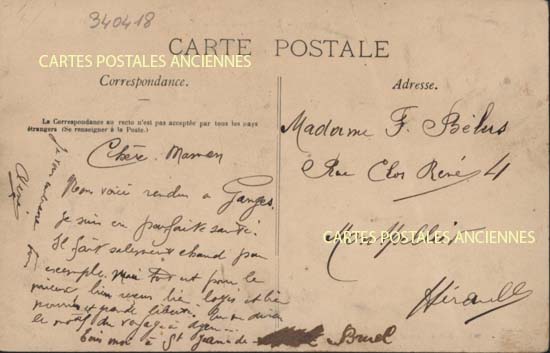 340418
CARTE POSTALE
CARTES POSTALES ANCIENNES
Correspondance.
Adresse.
La Correspondance au recto n'est pas acceptée par tous les pays
étrangers (Se renseigner à la Poste.)
Chère Maman
Nous voici rendus à Ganges.
Je suis en parfaite santé.
Il fait salement chaud par
exemple. Mais tout est pour le
mieux bien reçus bien logés et bien
nourris et grande liberté.
le motif du voyage
à St
Bruel
Madame F. Bélus
Rue Clos René 4
Montpellier
CARTES POSTALES ANCIENNES
Hérault